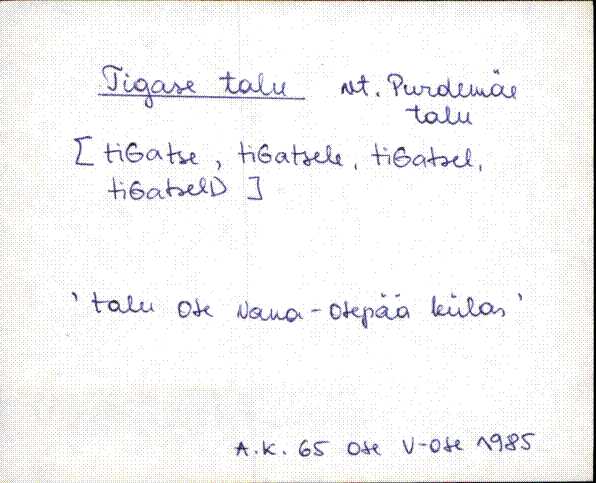 Tigase talu vt. Purdemäe
talu
[tiGatse, tiGatsele, tiGatsel,
tiGatselD]
'talu Ote Vana-Otepää külas'
A.K. 65 Ote V-Ote 1985